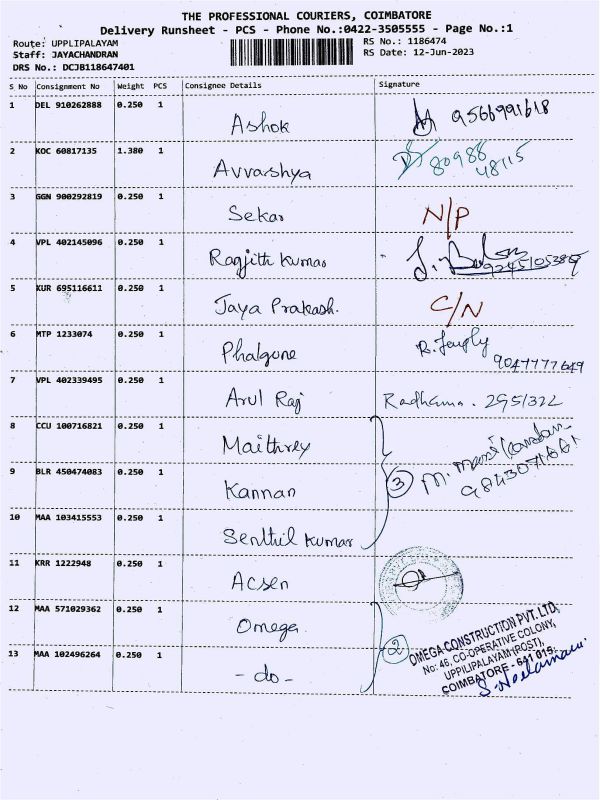 THE PROFESSIONAL COURIERS, COIMBATORE
Delivery Runsheet - PCS - Phone No.:0422-3505555 - Page No.:1
Route: UPPLIPALAYAM RS No.: 1186474
Staff: JAYACHANDRAN RS Date: 12-Jun-2023
DRS No.: DCJB118647401
S No Consignment No Weight PCS Consignee Details Signature
1 DEL 910262888 0.250 1 Ashok 9566991618
2 KOC 60817135 1.380 1 Avvarshya 80988
48115
3 GGN 900292819 0.250 1 Sekar N/P
4 VPL 402145096 0.250 1 Ragjith Kumar
5 KUR 695116611 0.250 1 Jaya Prakash. C/N
6 MTP 1233074 0.250 1 Phalgune
9047777649
7 VPL 402339495 0.250 1 Arul Raj Radhama. 295/322
8 CCU 100716821 0.250 1 Maithrey
9 BLR 450474083 0.250 1 Kannan 3 M. Manikandan
10 MAA 103415553 0.250 1 Senthil Kumar
11 KRR 1222948 0.250 1 Acsen
12 MAA 571029362 0.250 1 Omega 2
13 MAA 102496264 0.250 1 - do -
OMEGA CONSTRUCTION PVT. LTD,
No: 46, CO-OPERATIVE COLONY,
UPPILIPALAYAM (POST),
COIMBATORE - 641 015.